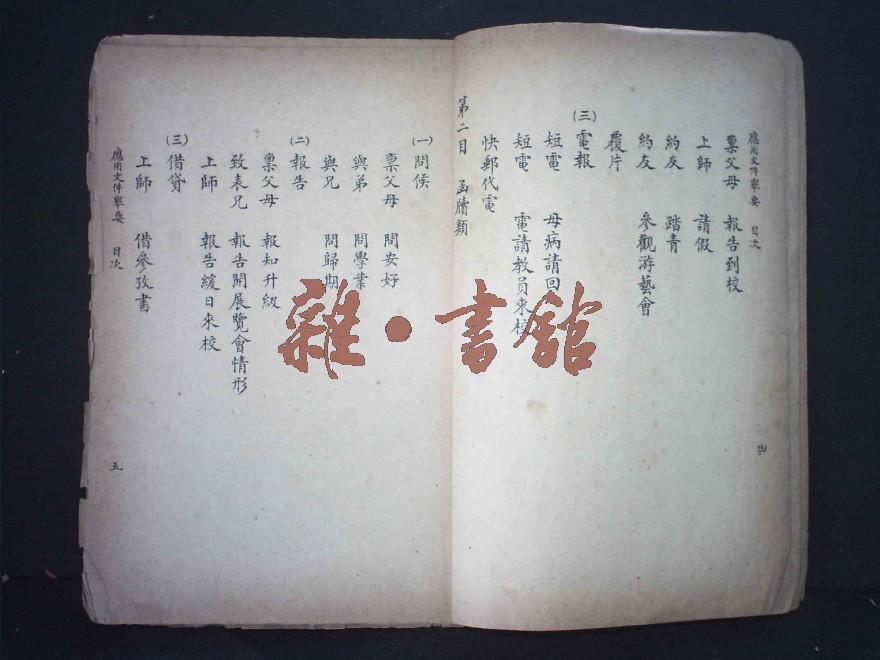 應用文件舉要 目次
稟父母 報告到校
上師 請假
約友 踏青
約友 參觀游藝會
覆片
(三)電報
短電 母病請回
短電 電請教員來校
快郵代電
第二目 函牘類
四
(一)問候
稟父母 問安好
與弟 問學業
與兄 問歸期
(二)報告
稟父母 報知升級
致表兄 報告開展覽會情形
上師 報告緩日來校
(三)借貸
上師 借參攷書
應用文件舉要 目次
五
雜·書館